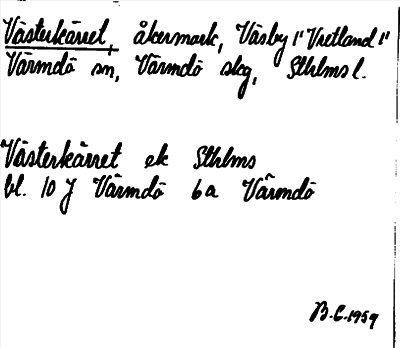 Västerkärret, åkermark, Väsby, "Vretland"
Värmdö sn, Värmdö skg, Sthlms l.
Västerkärret ek Sthlms
bl. 10 J Värmdö 6a Värmdö
B.C. 1959